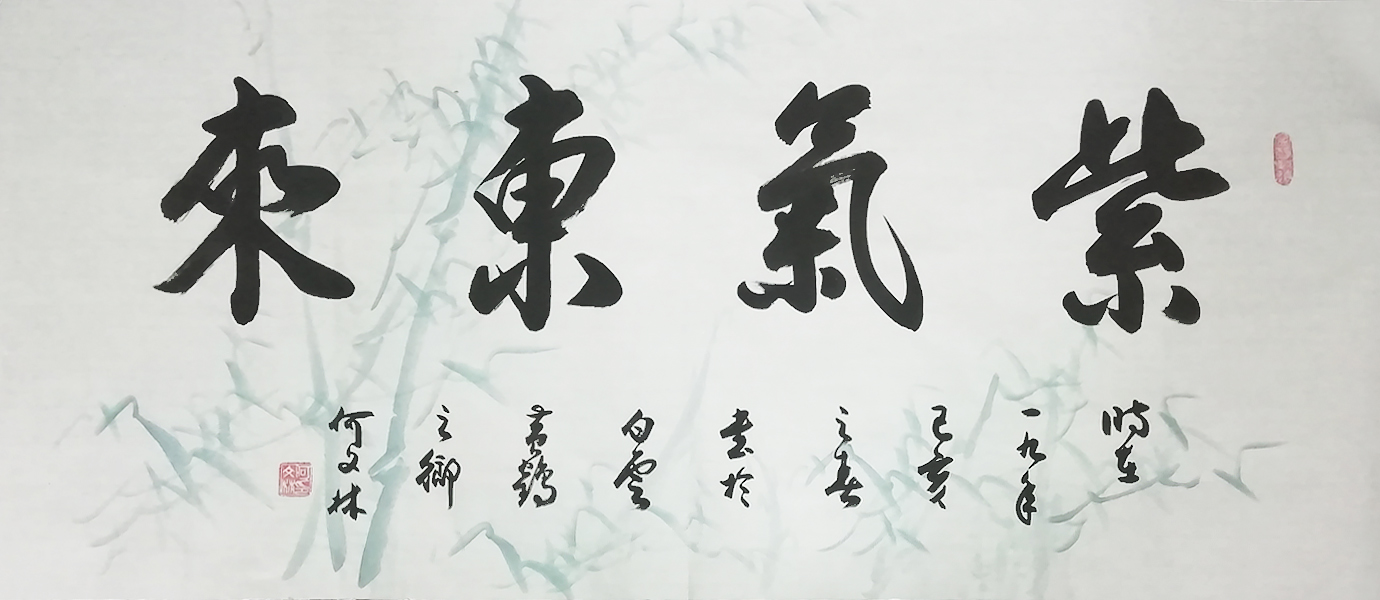 紫氣東來
時在
一九年
己亥
之春
書於
白雲
黃鶴
之鄉
何文林